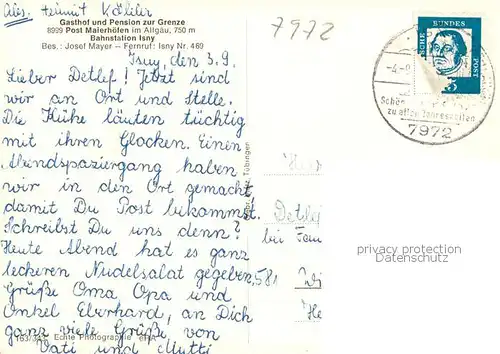 Abs. Helmut Köhler
7972
Gasthof und Pension zur Grenze
8999 Post Maierhöfen im Allgäu, 750 m
Bahnstation Isny
Bes.: Josef Mayer – Fernruf: Isny Nr. 469
Isny, den 3.9.
Lieber Detlef! Jetzt sind
wir an Ort und Stelle.
Die Kühe läuten tüchtig
mit ihren Glocken. Einen
Abendspaziergang haben
wir in den Ort gemacht,
damit Du Post bekommst.
Schreibst Du uns denn?
Heute Abend hat es ganz
leckeren Nudelsalat gegeben.
Grüße Oma Opa und
Onkel Eberhard, an Dich
ganz viele Grüße von
Vati und Mutti
163/343 Echte Photographie
Tübingen
BUNDES
POST
5
Schön
zu allen Jahreszeiten
7972
Herr
Detlef
bei Fam
581 Wi
He
privacy protection
Datenschutz